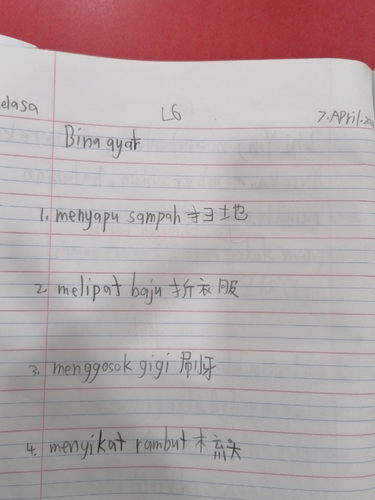 elasa L6 7.April.20
Bina ayat
1. menyapu sampah 扫土地
2. melipat baju 折衣服
3. menggosok gigi 刷牙
4. menyikat rambut